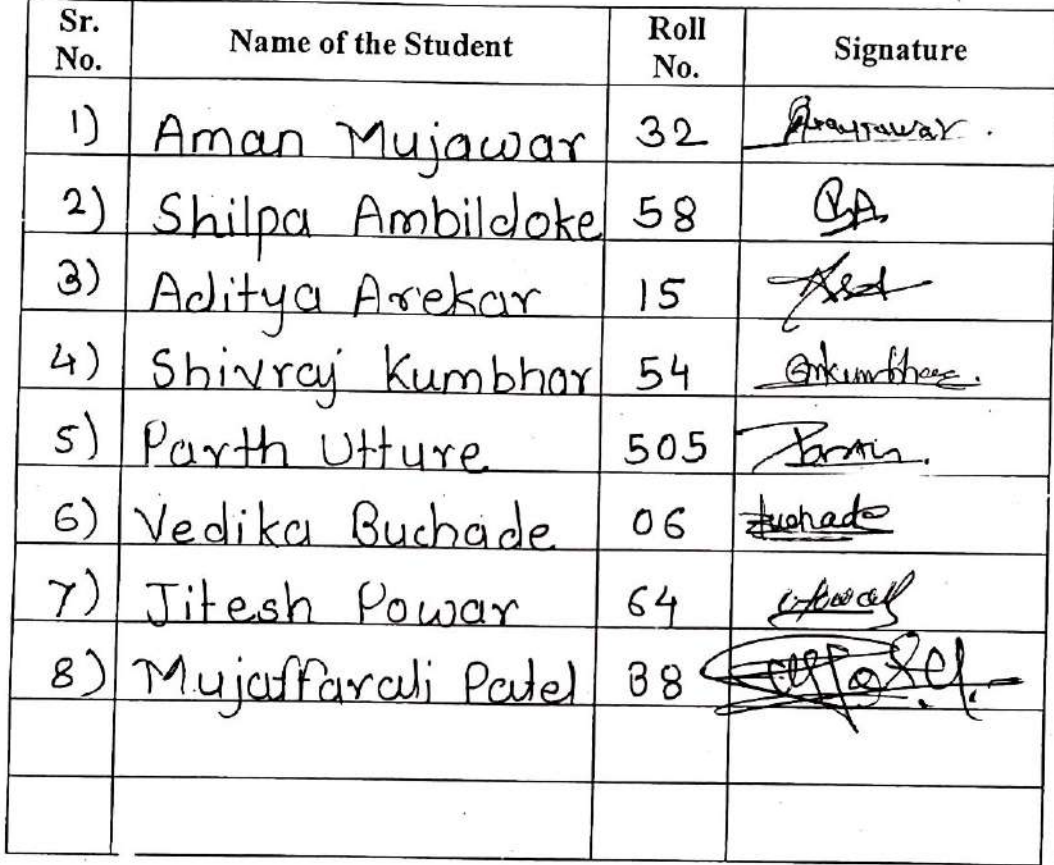 Sr. No. Name of the Student Roll No. Signature
1) Aman Mujawar 32
2) Shilpa Ambildoke 58
3) Aditya Arekar 15
4) Shivraj Kumbhar 54
5) Parth Utture 505
6) Vedika Buchade 06
7) Jitesh Powar 64
8) Mujaffarali Patel 38